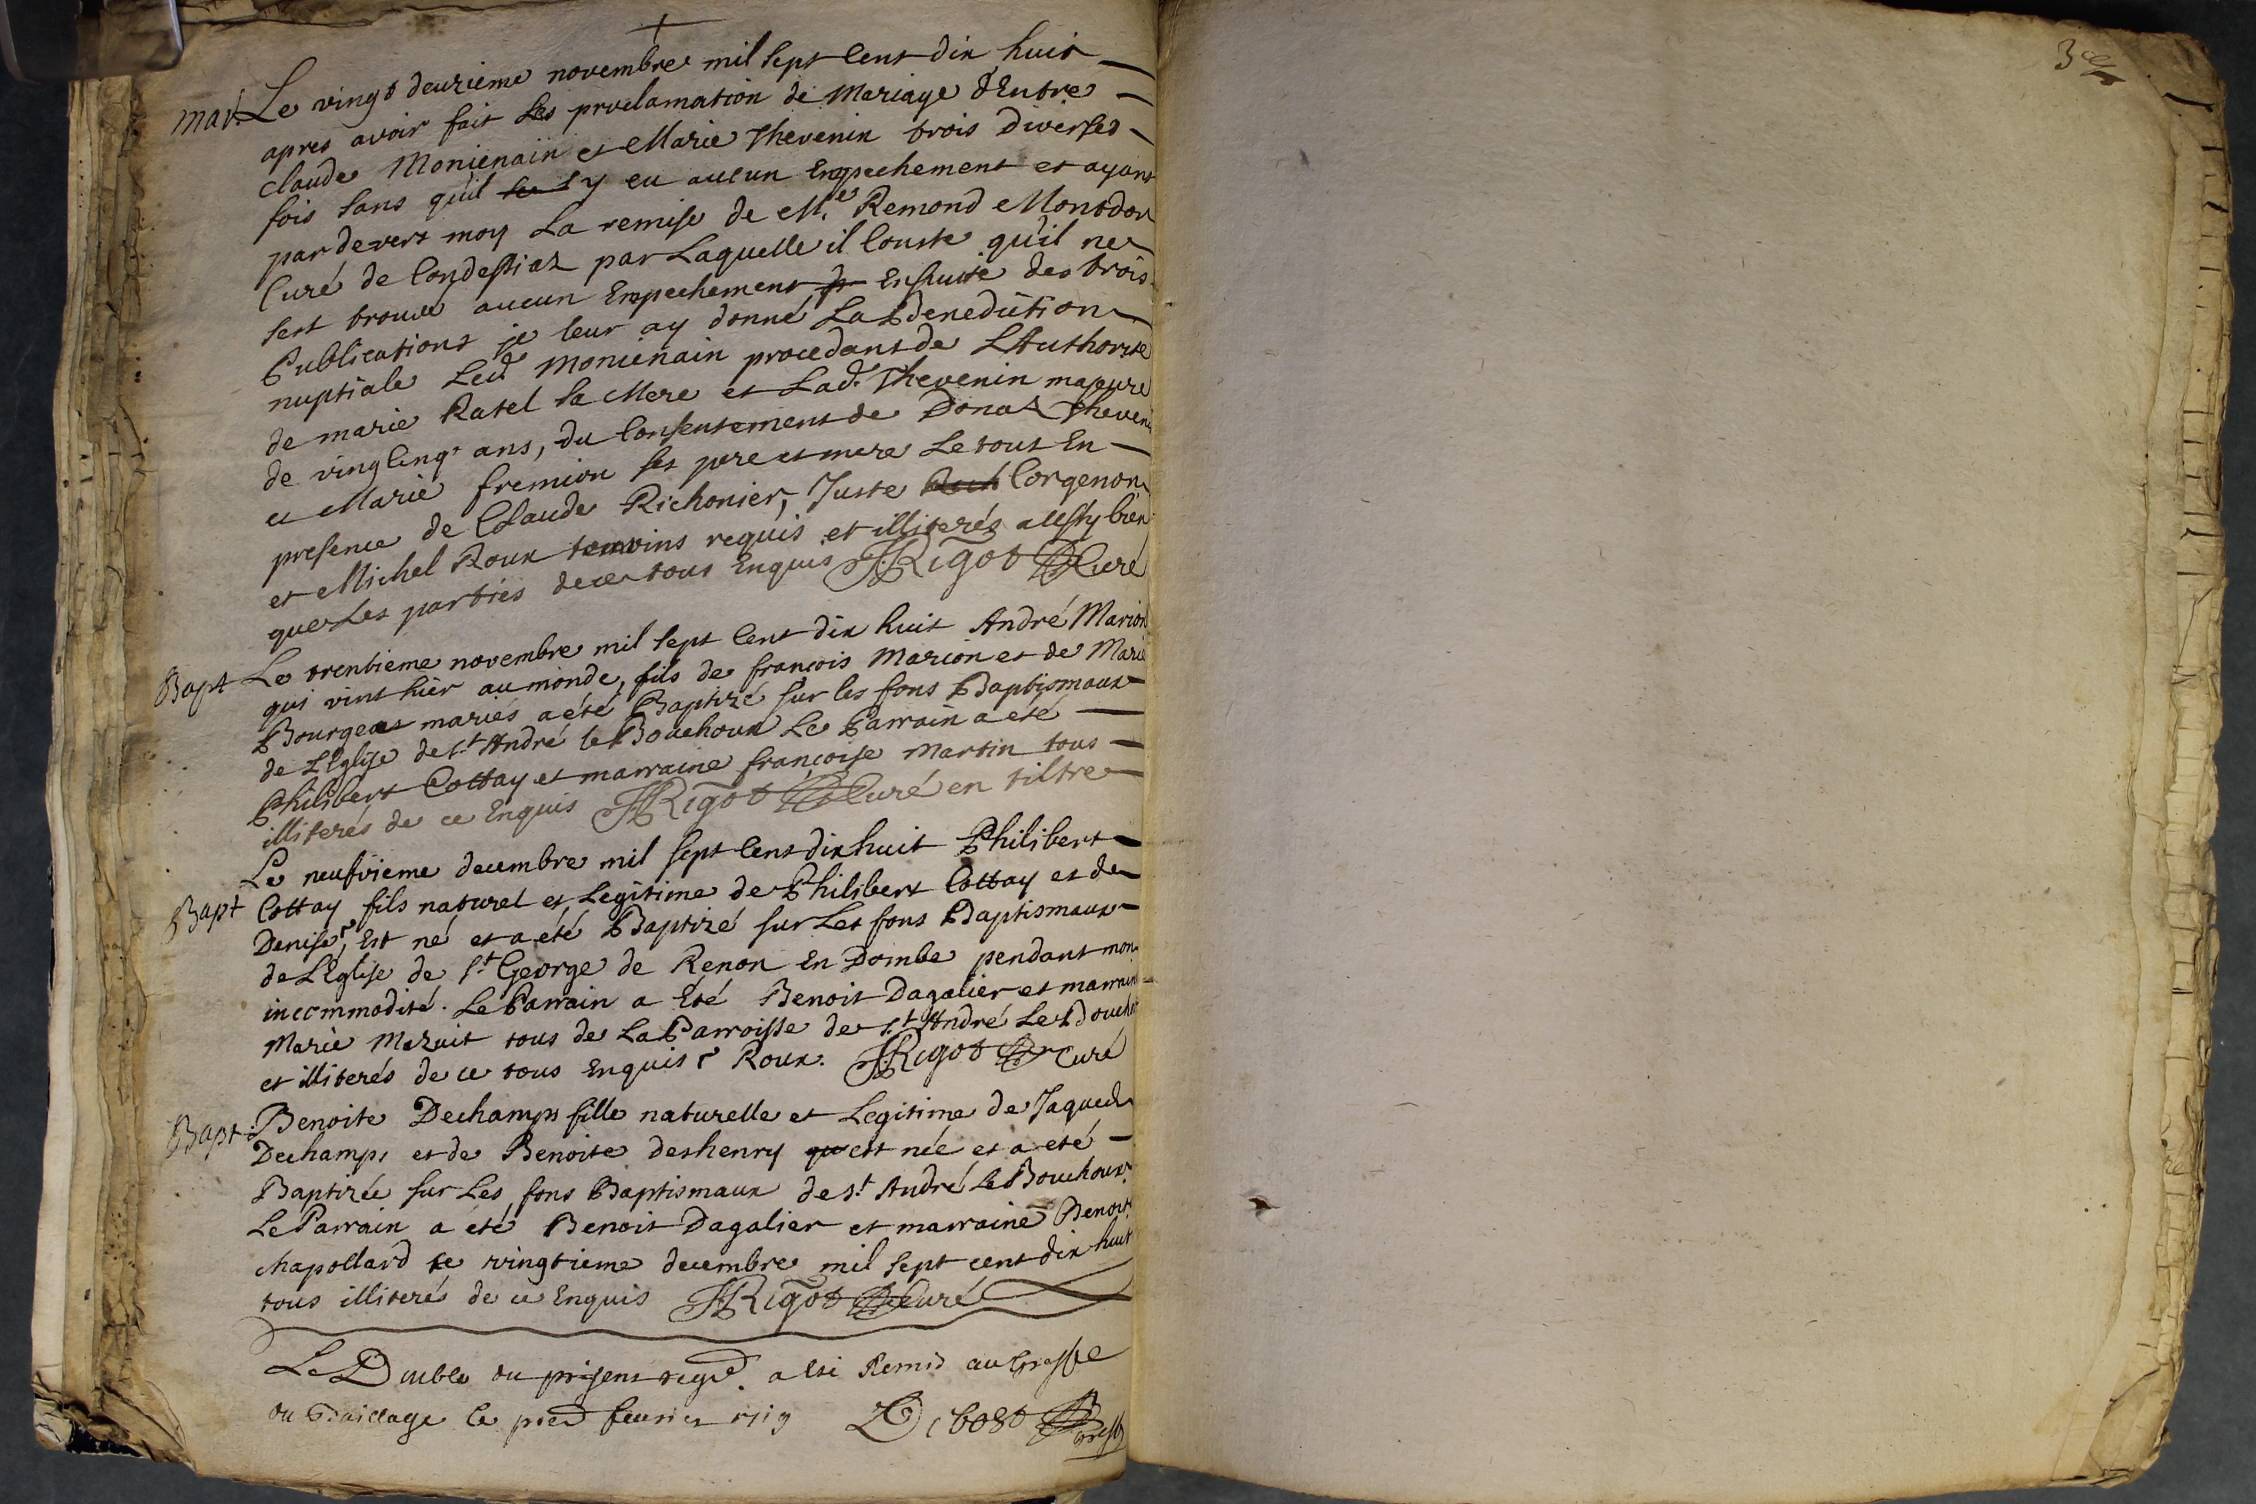 mar. Le vingt deuzieme novembre mil sept cent dix huit
apres avoir fait les proclamation de Mariage d'Entre
Claude Moniénain et Marie Thevenin trois diverses
fois sans qu'il y eu aucun Empechement et ayant
par devers moy La remise de Mre Remond Montdor
Curé de Condessiat par Laquelle il Conste qu'il ne
sest trouvé aucun Empechement Ensuite des trois
Publications je leur ay donné La Benediction
nuptiale Led. Moniénain procedant de L'Authorite
de marie Ratel sa Mere et Lad. Thevenin majeure
de vingt cinq ans, du Consentement de Donat Theveni
et Marie fremion ses pere et mere Le tout En
presence de Claude Richonier, Juste Corgenon
et Michel Roux temoins requis et illiterés aussy bien
que Les parties de ce tous Enquis JRigot Curé
Bapt Le trentieme novembre mil sept cent dix huit André Marion
qui vint hier au monde, fils de françois Marion et de Marie
Bourgeat mariés a été Baptizé sur les fons Baptismaux
de L'Eglise de St André le Bouchoux Le Parrain a été
Philibert Cottay et marraine françoise Martin tous
illiterés de ce Enquis JRigot Curé en tiltre
Le neufvieme decembre mil sept cent dix huit Philibert
Bapt Cottay fils naturel et Legitime de Philibert Cottay et de
Denise, Est né et a été Baptizé sur Les fons Baptismaux
de L'Eglise de St George de Renon En Dombe pendant mon
incommodité. Le Parrain a Eté Benoit Dagalier et marraine
Marie Mazuit tous de La Parroisse de St André Le Bouchoux
et illiterés de ce tous Enquis Roux. JRigot Curé
Bapt. Benoite Dechamps fille naturelle et Legitime de Jaques
Dechamps et de Benoite deshenry est née et a eté
Baptizée sur Les fons Baptismaux de St André Le Bouchoux.
Le Parrain a été Benoit Dagalier et marraine Benoite
chapollard le vingtieme decembre mil sept cent dix huit
tous illiteré de ce Enquis JRigot Curé
Le Double du present regre. a esté Remis au Greffe
du Bailliage le pred fevrier 1719 Debost